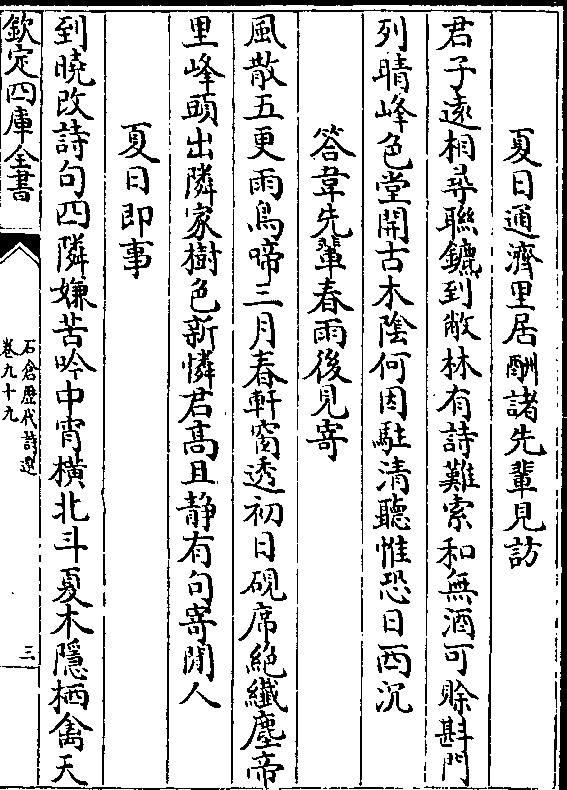 夏日通濟里居酬諸先輩見訪
君子遠相尋聯鑣到敝林有詩難索和無酒可賒斟門
列晴峰色堂開古木陰何因駐清聽惟恐日西沉
答韋先輩春雨後見寄
風散五更雨鳥啼三月春軒窗透初日硯席絶纎塵帝
里峰頭出隣家樹色新憐君髙且静有句寄閒人
夏日即事
到曉改詩句四隣嫌苦吟中宵橫北斗夏木隱栖禽天
欽定四庫全書
石倉歷代詩選
卷九十九
三